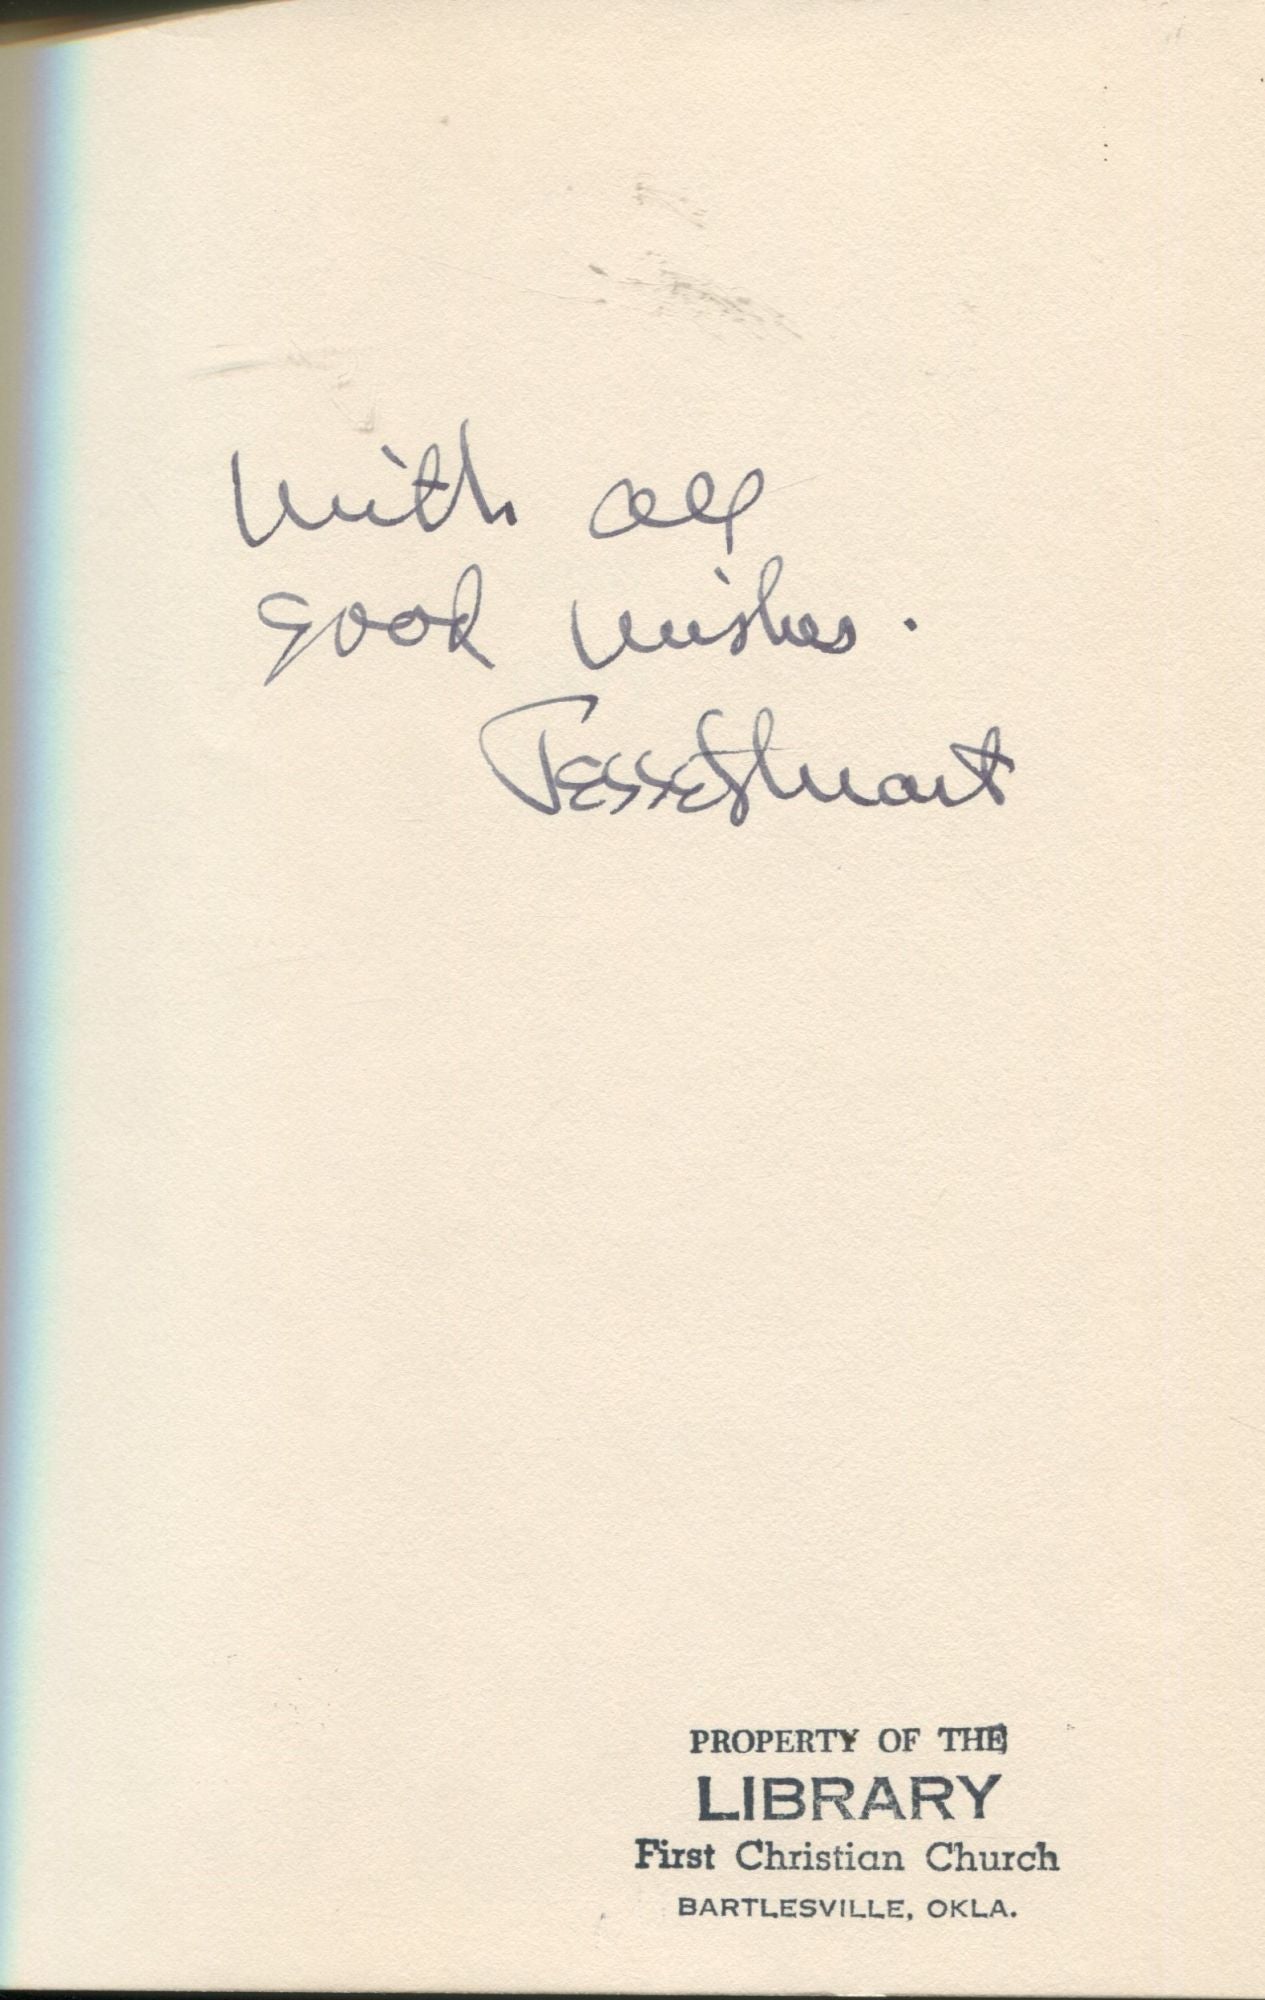 With all
good wishes.
Jesse Stuart
PROPERTY OF THE
LIBRARY
First Christian Church
BARTLESVILLE, OKLA.